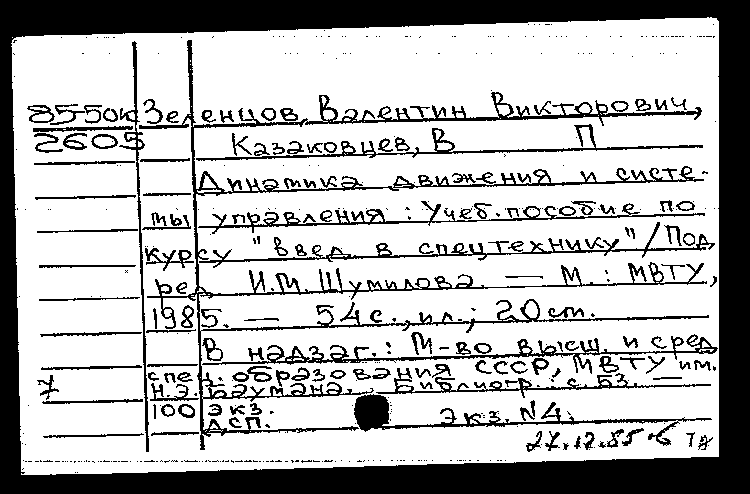 85-5дк Зеленцов, Валентин Викторович,
2605 Казаковцев, В П
Динамика движения и систе-
мы управления : Учеб. пособие по
курсу "Введ. в спецтехнику" / Под
ред. И.М. Шумилова. — М. : МВТУ,
1985. — 54 с., ил.; 20 см.
В надзаг.: М-во высш. и сред
спец. образования СССР, МВТУ им.
Н.Э. Баумана. Библиогр.: с. 53. —
100 экз.
ДСП. экз. N4.
27.12.85